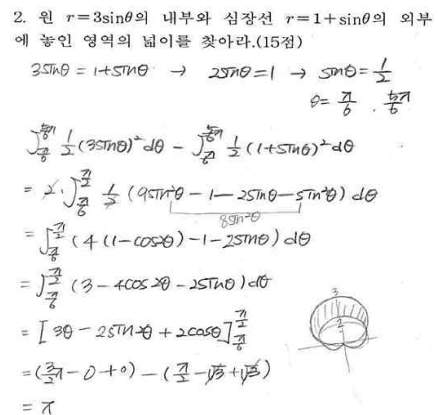 2. 원 r=3sinθ의 내부와 심장선 r=1+sinθ의 외부
에 놓인 영역의 넓이를 찾아라.(15점)
3sinθ = 1+sinθ → 2sinθ=1 → sinθ=1/2
θ= π/6 . 5π/6
∫_{π/6}^{5π/6} 1/2 (3sinθ)² dθ - ∫_{π/6}^{5π/6} 1/2 (1+sinθ)² dθ
= 2·∫_{π/6}^{π/2} 1/2 (9sin²θ - 1 - 2sinθ - sin²θ) dθ
8sin²θ
= ∫_{π/6}^{π/2} (4(1-cos2θ) -1-2sinθ) dθ
= ∫_{π/6}^{π/2} (3 - 4cos2θ - 2sinθ) dθ
= [3θ - 2sin2θ + 2cosθ]_{π/6}^{π/2}
= (3/2π - 0 + 0) - (π/2 - √3 + √3)
= π
3
2